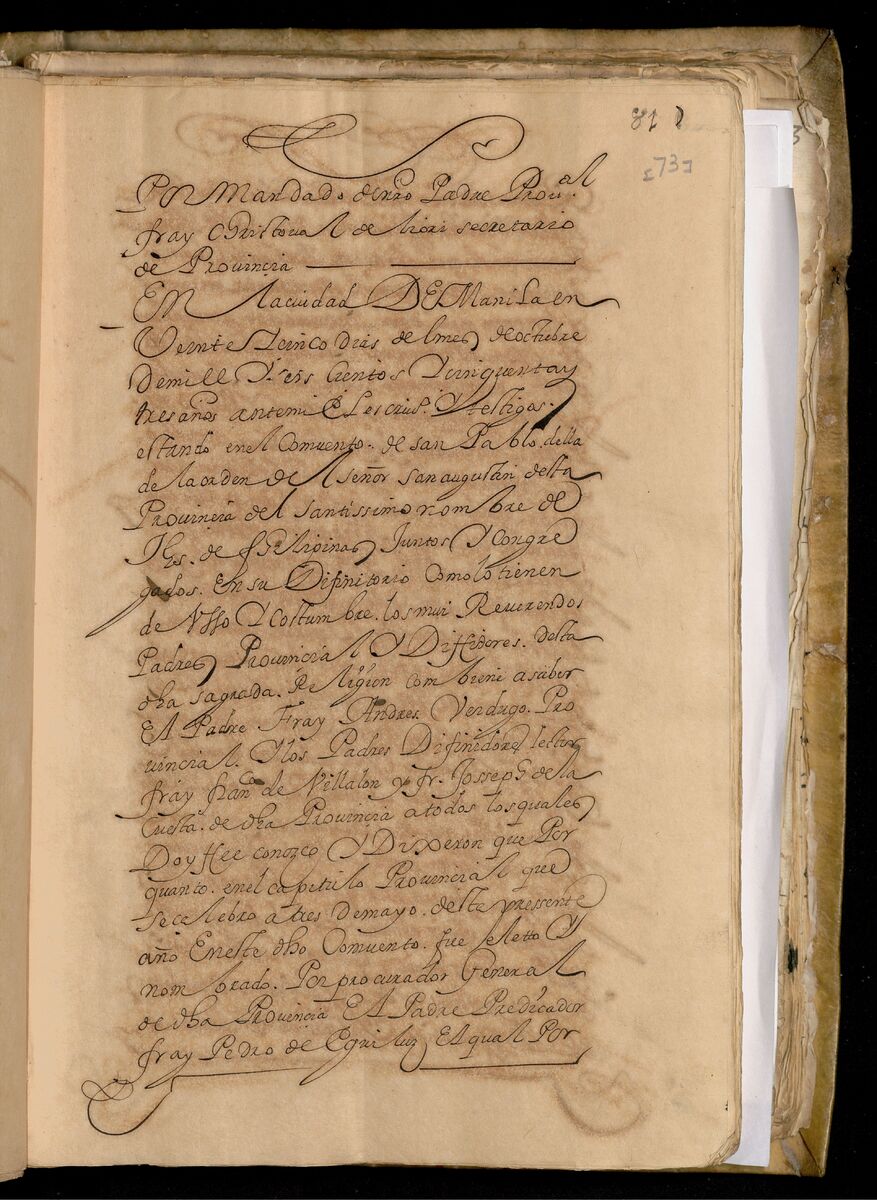 81
[73]
Por Mandado denro Padre Proual
fray Christoual de liori secretario
de Prouincia
EN Laciudad DE Manila en
Veinte Y cinco dias de lmes de octubre
Demill Y seis cientos Y cinquenta y
tres años antemi El escriuo. Y testigos.
estando en el Comuento. de san Pablo. della
de la orden de l señor san augustin desta
Prouincia del santissimo nombre de
Jhs. de fhilipinas Juntos Y Congre
gados. En su Difinitorio como lo tienen
de Vsso Y Costumbre. los mui Reuerendos
Padres Prouincial Y Diffidores. desta
dha sagrada. Religion combiene a sauer
El Padre Fray Andres Verdugo. Pro
uincial. Y los Padres Difinidores lector
fray franco de Villalon y fr. Josseph de la
Cuesta. de dha Prouincia a todos los quales
Doy ffee conozco Y Dixeron que Por
quanto. en el capitulo Prouincial que
se celebro a tres de mayo. deste pressente
año En este dho Comuento. fue eletto Y
nombrado. Por procurador General
de dha Prouincia El Padre Predicador
fray Pedro de Eguiluz El qual Por